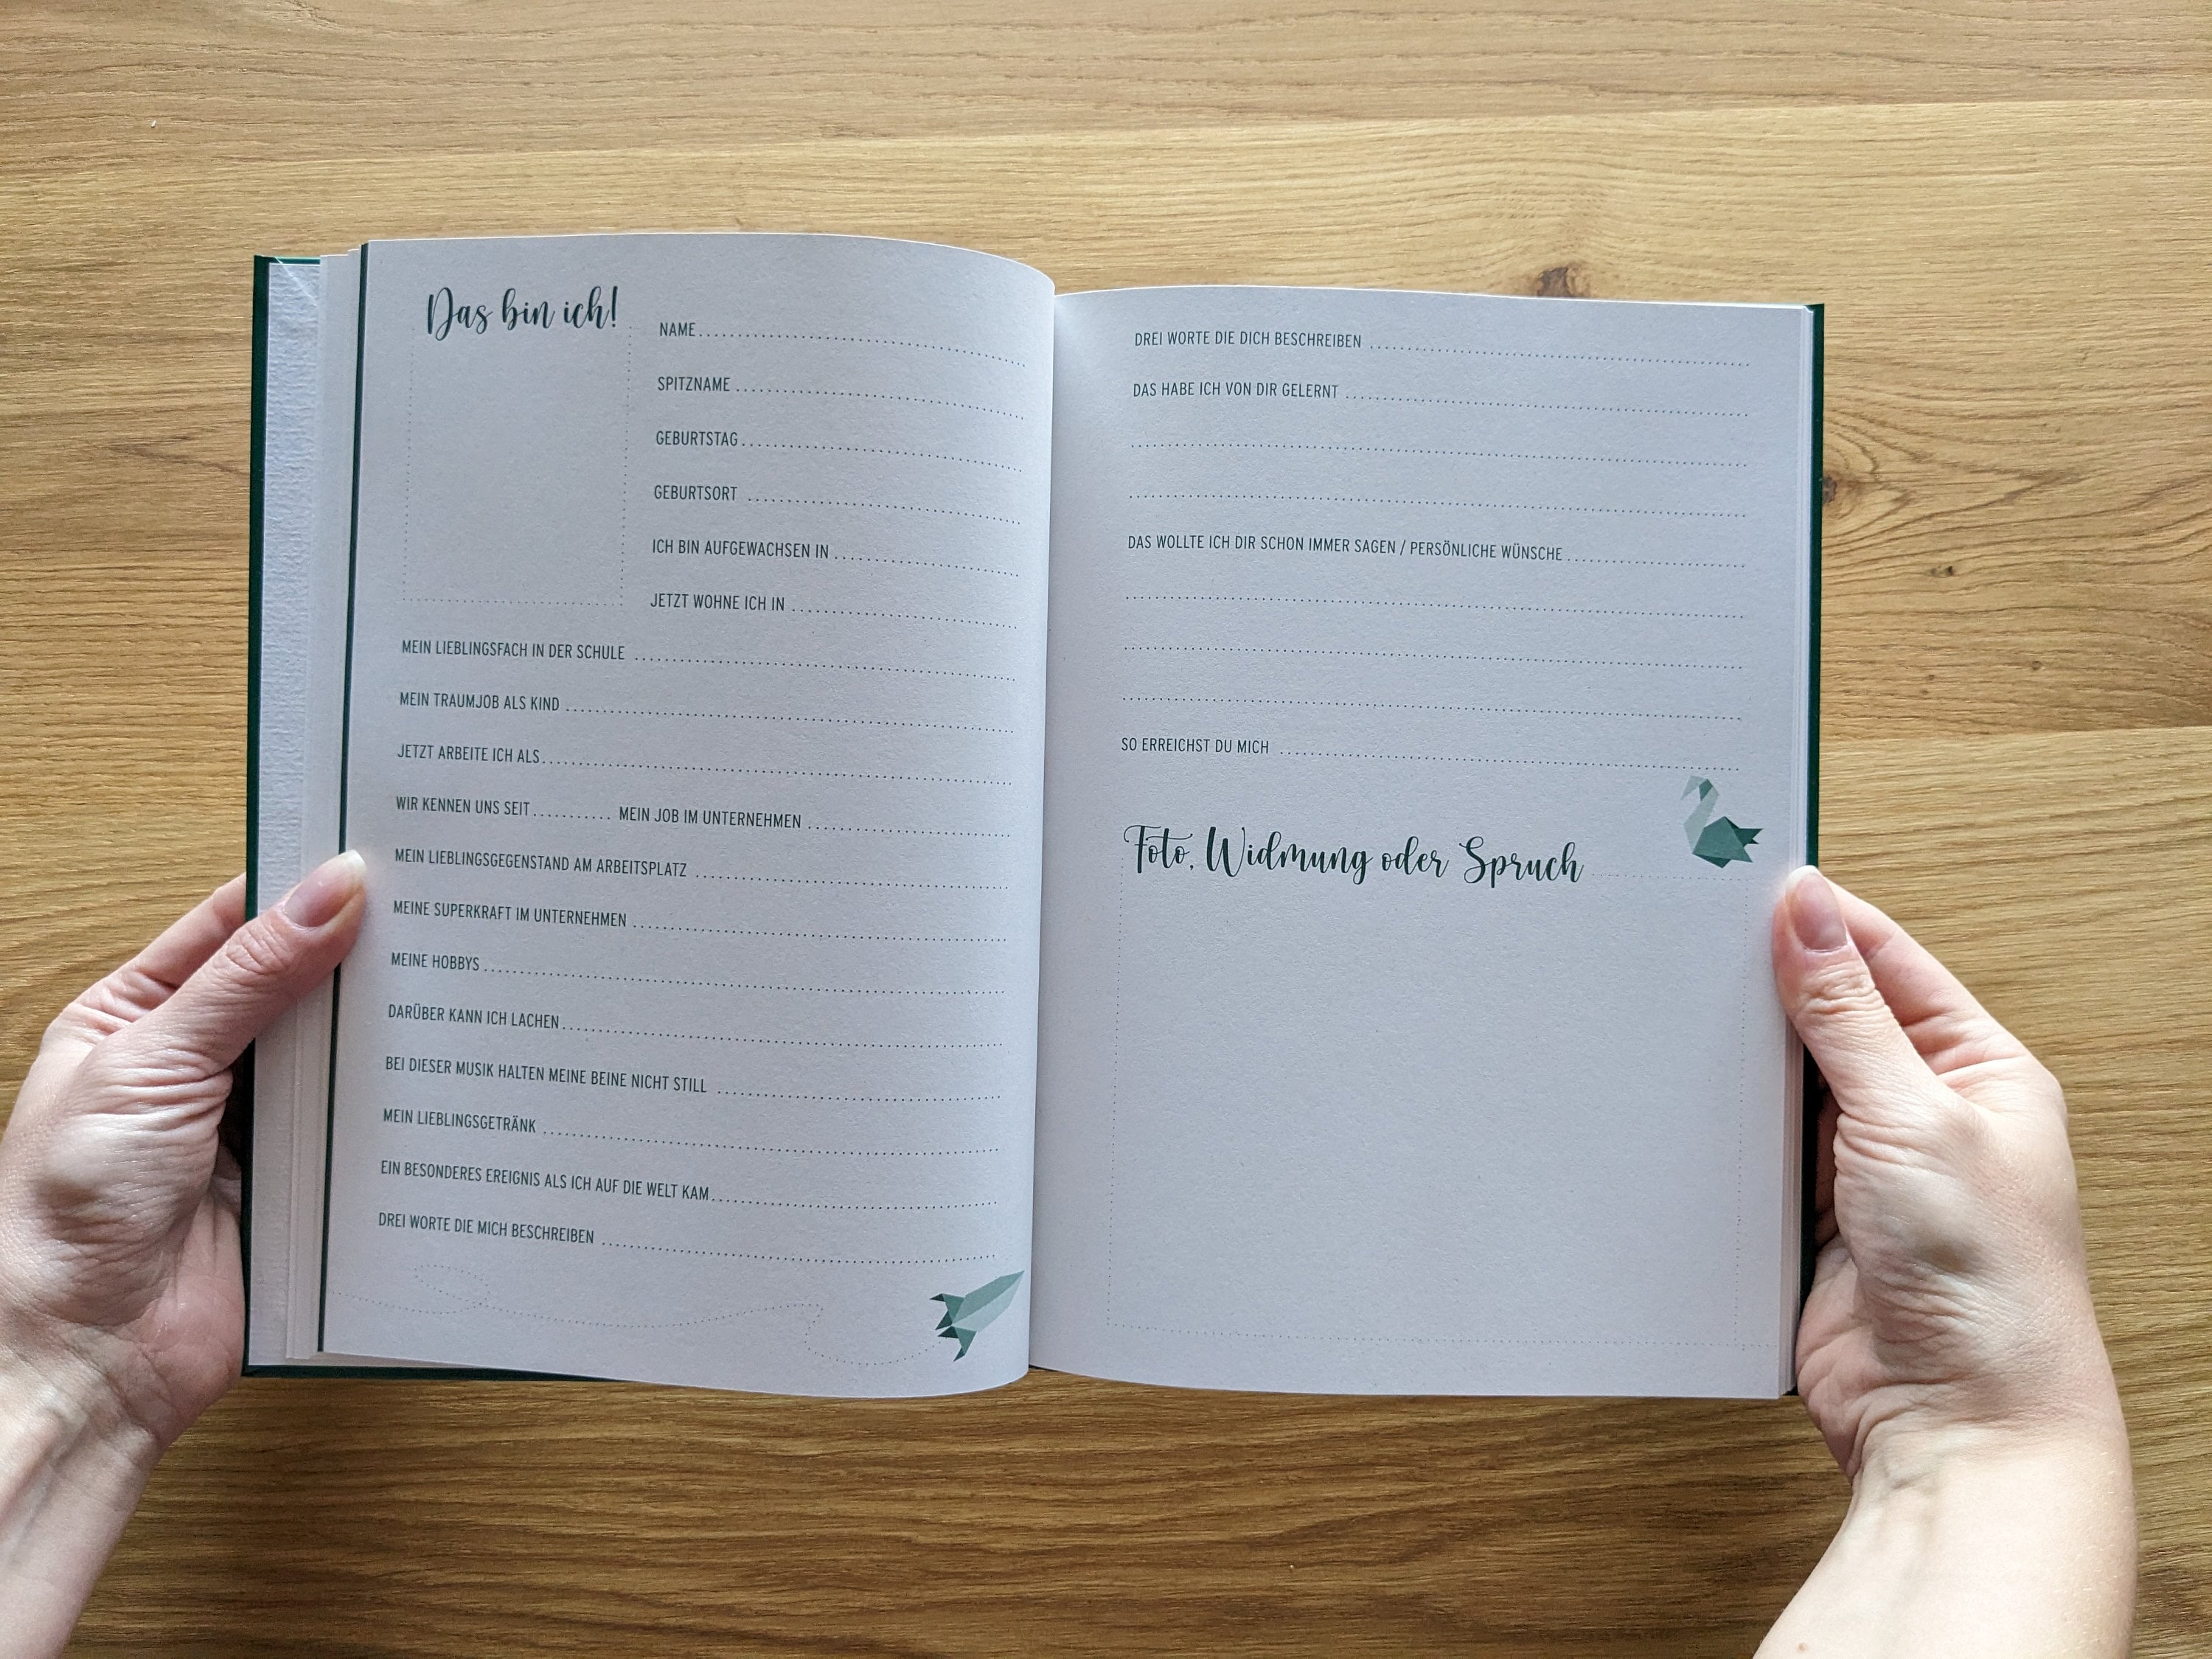 Das bin ich!
NAME
SPITZNAME
GEBURTSTAG
GEBURTSORT
ICH BIN AUFGEWACHSEN IN
JETZT WOHNE ICH IN
MEIN LIEBLINGSFACH IN DER SCHULE
MEIN TRAUMJOB ALS KIND
JETZT ARBEITE ICH ALS
WIR KENNEN UNS SEIT MEIN JOB IM UNTERNEHMEN
MEIN LIEBLINGSGEGENSTAND AM ARBEITSPLATZ
MEINE SUPERKRAFT IM UNTERNEHMEN
MEINE HOBBYS
DARÜBER KANN ICH LACHEN
BEI DIESER MUSIK HALTEN MEINE BEINE NICHT STILL
MEIN LIEBLINGSGETRÄNK
EIN BESONDERES EREIGNIS ALS ICH AUF DIE WELT KAM
DREI WORTE DIE MICH BESCHREIBEN
DREI WORTE DIE DICH BESCHREIBEN
DAS HABE ICH VON DIR GELERNT
DAS WOLLTE ICH DIR SCHON IMMER SAGEN / PERSÖNLICHE WÜNSCHE
SO ERREICHST DU MICH
Foto, Widmung oder Spruch